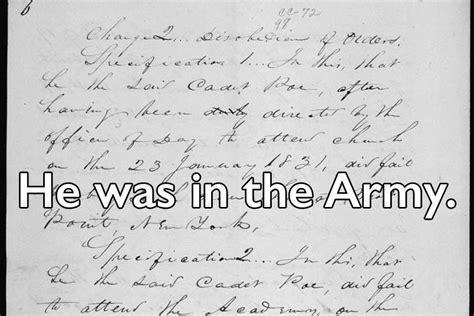 6
CC-72
98
Charge 2... Disobedience of Orders.
Specification 1... In this, that
he the said Cadet Poe, after
having been duly directed by the
officer of Day to attend church
on the 23 January 1831, did fail
He was in the Army.
Point, New York.
Specification 2... In this, that
he the said Cadet Poe, did fail
to attend the Academy on the